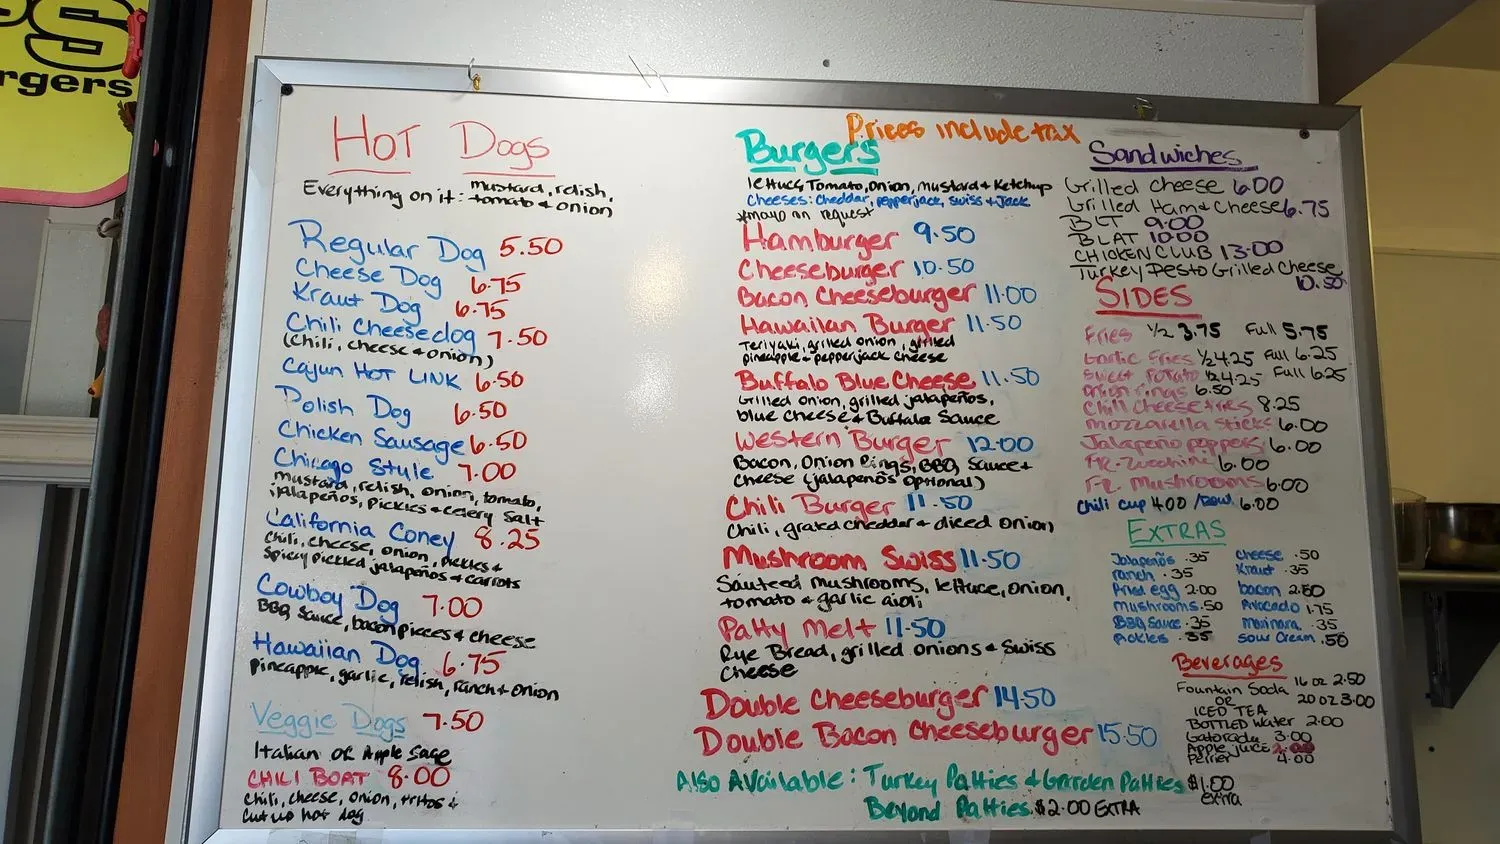 PS
rgers
HOT Dogs
Everything on it: mustard, relish,
tomato & onion
Regular Dog 5.50
Cheese Dog 6.75
Kraut Dog 6.75
Chili Cheesedog 7.50
(Chili, cheese & onion)
Cajun HOT LINK 6.50
Polish Dog 6.50
Chicken Sausage 6.50
Chicago Style 7.00
mustard, relish, onion, tomato,
jalapeños, pickles & celery salt
California Coney 8.25
Chili, cheese, onion, pickles &
spicy pickled jalapeños & carrots
Cowboy Dog 7.00
BBQ Sauce, bacon pieces & cheese
Hawaiian Dog 6.75
pineapple, garlic, relish, ranch & onion
Veggie Dogs 7.50
Italian or Apple Sage
CHILI BOAT 8.00
Chili, cheese, onion, fritos &
cut up hot dog
Prices include tax
Burgers
lettuce, Tomato, onion, mustard & Ketchup
Cheeses: Cheddar, pepperjack, swiss & Jack
*mayo on request
Hamburger 9.50
Cheeseburger 10.50
Bacon Cheeseburger 11.00
Hawaiian Burger 11.50
Teriyaki, grilled onion, grilled
pineapple & pepperjack cheese
Buffalo Blue Cheese 11.50
Grilled onion, grilled jalapeños,
blue cheese & Buffalo Sauce
Western Burger 12.00
Bacon, Onion Rings, BBQ Sauce &
Cheese (jalapeños optional)
Chili Burger 11.50
Chili, grated cheddar & diced onion
Mushroom Swiss 11.50
Sauteed mushrooms, lettuce, onion,
tomato & garlic aioli
Patty Melt 11.50
Rye Bread, grilled onions & Swiss
Cheese
Double Cheeseburger 14.50
Double Bacon Cheeseburger 15.50
Also Available: Turkey Patties & Garden Patties $1.00
extra
Beyond Patties $2.00 EXTRA
Sandwiches
Grilled Cheese 6.00
Grilled Ham & Cheese 6.75
BLT 9.00
BLAT 10.00
CHICKEN CLUB 13.00
Turkey Pesto Grilled Cheese
10.50
SIDES
Fries 1/2 3.75 Full 5.75
Garlic Fries 1/2 4.25 Full 6.25
Sweet Potato 1/2 4.25 Full 6.25
Onion rings 6.50
Chili Cheese fries 8.25
Mozzarella sticks 6.00
Jalapeño poppers 6.00
FR. Zucchini 6.00
FR. Mushrooms 6.00
Chili cup 4.00 /Bowl 6.00
EXTRAS
Jalapeños .35 cheese .50
ranch .35 Kraut .35
Fried egg 2.00 bacon 2.50
mushrooms .50 Avocado 1.75
BBQ Sauce .35 Marinara .35
Pickles .35 Sour Cream .50
Beverages
Fountain Soda 16 oz 2.50
OR 20 oz 3.00
ICED TEA
BOTTLED Water 2.00
Gatorade 3.00
Apple juice
Perrier 4.00